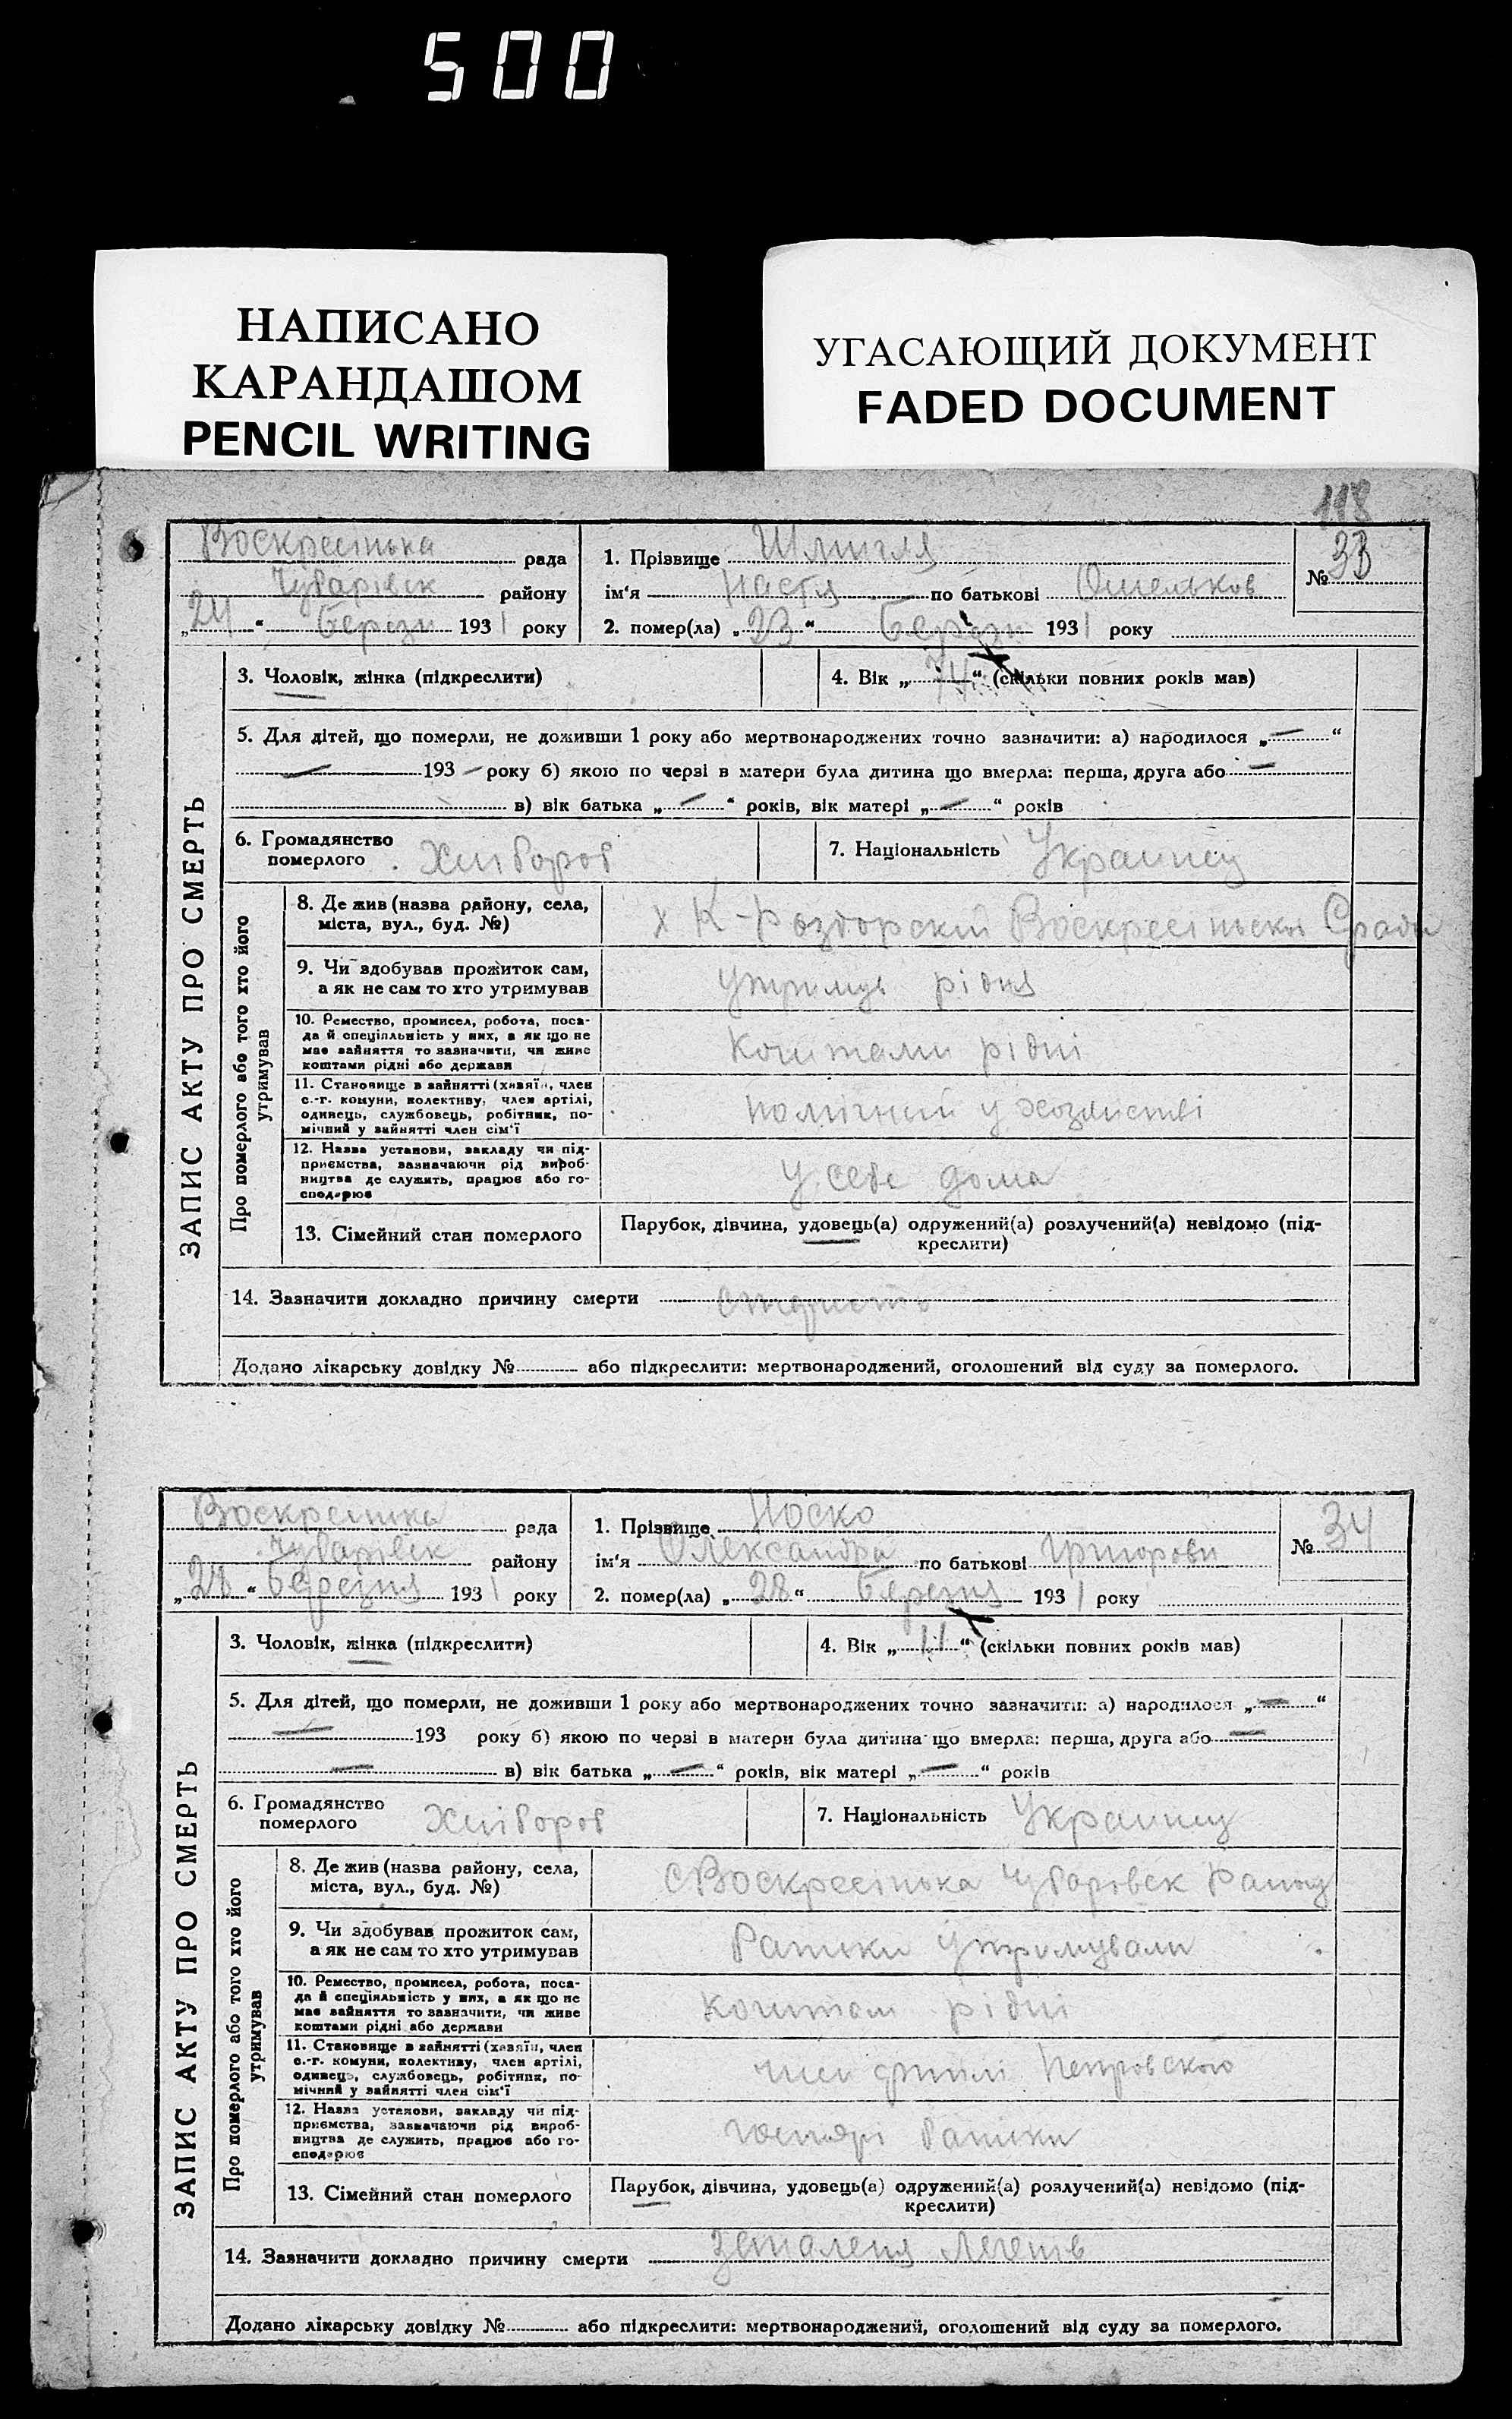 500
НАПИСАНО
КАРАНДАШОМ
PENCIL WRITING
УГАСАЮЩИЙ ДОКУМЕНТ
FADED DOCUMENT
118
Воскресінька рада
Чубарівск району
„24“ Березн 1931 року
1. Прізвище
ім'я Настя по батькові Омельков
2. помер(ла) „23“ Березн 1931 року
№ 33
ЗАПИС АКТУ ПРО СМЕРТЬ
3. Чоловік, жінка (підкреслити)
4. Вік „74“ (скільки повних років мав)
5. Для дітей, що померли, не доживши 1 року або мертвонароджених точно зазначити: а) народилося „—“
— 193— року б) якою по черзі в матери була дитина що вмерла: перша, друга або —
в) вік батька „—“ років, вік матері „—“ років
6. Громадянство
померлого
Хлібороб
7. Національність Украинец
Про померлого або того хто його
утримував
8. Де жив (назва району, села,
міста, вул., буд. №)
х К-Роздорский Воскресіньскы Сради
9. Чи здобував прожиток сам,
а як не сам то хто утримував
утримув рідня
10. Ремество, промисел, робота, поса-
да й спеціяльність у них, а як що не
має зайняття то зазначити, чи живе
коштами рідні або держави
Коштами рідні
11. Становище в зайнятті (хазяїн, член
с.-г. комуни, колективу, член артілі,
одинець, службовець, робітник, по-
мічний у зайнятті член сім'ї
помічний у хозяистві
12. Назва установи, закладу чи під-
приємства, зазначаючи рід вироб-
ництва де служить, працює або го-
сподарює
у себе дома
13. Сімейний стан померлого
Парубок, дівчина, удовець(а) одружений(а) розлучений(а) невідомо (під-
креслити)
14. Зазначити докладно причину смерти старисть
Додано лікарську довідку № або підкреслити: мертвонароджений, оголошений від суду за померлого.
Воскресінка рада
Чубарівск району
„28“ Березня 1931 року
1. Прізвище Носко
ім'я Олександра по батькові Григорови
2. помер(ла) „28“ Березня 1931 року
№ 34
ЗАПИС АКТУ ПРО СМЕРТЬ
3. Чоловік, жінка (підкреслити)
4. Вік „11“ (скільки повних років мав)
5. Для дітей, що померли, не доживши 1 року або мертвонароджених точно зазначити: а) народилося „—“
— 193 року б) якою по черзі в матери була дитина що вмерла: перша, друга або —
— в) вік батька „—“ років, вік матері „—“ років
6. Громадянство
померлого
Хлібороб
7. Національність Украинец
Про померлого або того хто його
утримував
8. Де жив (назва району, села,
міста, вул., буд. №)
с Воскресінька Чубарівск Району
9. Чи здобував прожиток сам,
а як не сам то хто утримував
Батьки утримували
10. Ремество, промисел, робота, поса-
да й спеціяльність у них, а як що не
має зайняття то зазначити, чи живе
коштами рідні або держави
Коштом рідні
11. Становище в зайнятті (хазяїн, член
с.-г. комуни, колективу, член артілі,
одинець, службовець, робітник, по-
мічний у зайнятті член сім'ї
член артилі Петровского
12. Назва установи, закладу чи під-
приємства, зазначаючи рід вироб-
ництва де служить, працює або го-
сподарює
батьки
13. Сімейний стан померлого
Парубок, дівчина, удовець(а) одружений(а) розлучений(а) невідомо (під-
креслити)
14. Зазначити докладно причину смерти Легенів
Додано лікарську довідку № або підкреслити: мертвонароджений, оголошений від суду за померлого.